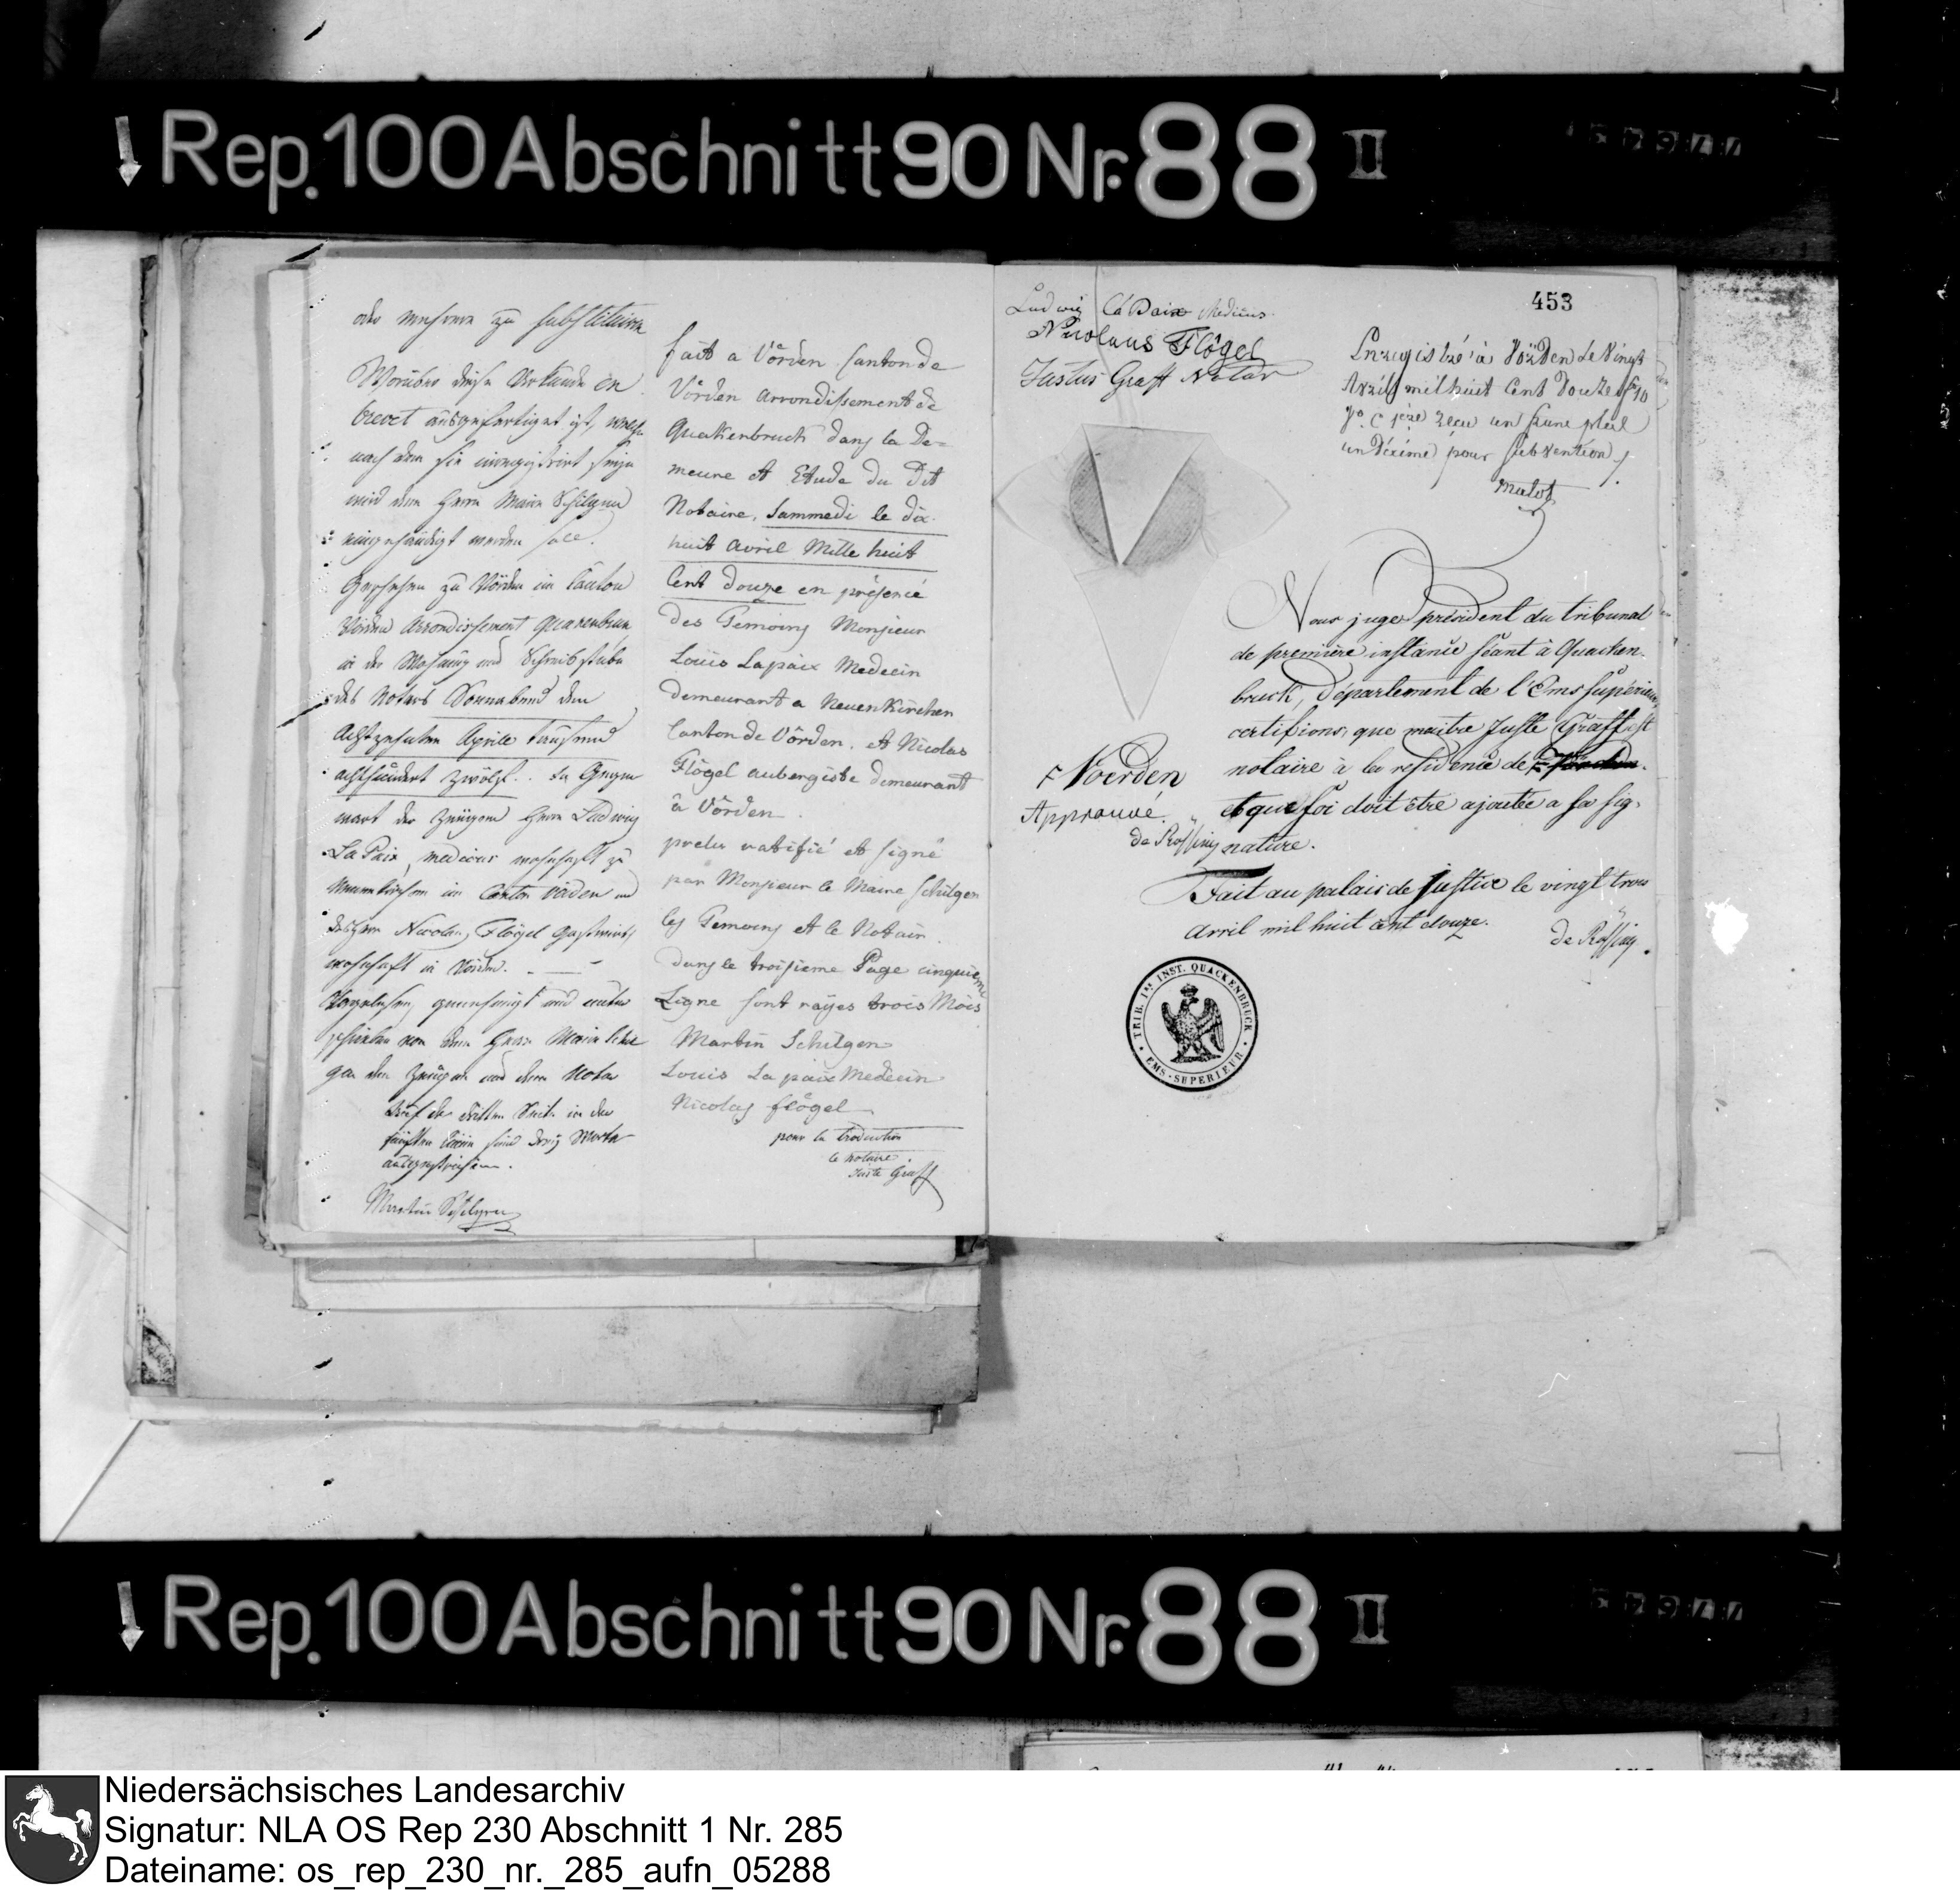 Rep. 100 Abschnitt 90 Nr. 88 II
oder mehrere zu substituiren
Worüber diese Urkunde en
brevet ausgefertiget ist, welche
nach dem sie inregistrirt seyn
wird dem Herrn Maire Schilgen
eingehändigt werden soll.
Geschehen zu Vörden im Canton
Vörden Arrondissement Quakenbruck
in der Wohnung und Schreibstube
des Notars Sonnabend den
Achtzehnten Aprile tausend
achthundert zwölf. In Gegen
wart der Zeugen Herrn Ludwig
La Paix, medicus wohnhaft zu
Neuenkirchen im Canton Vörden und
des Herrn Nicolaus Flögel Gastwirth
wohnhaft in Vörden.
Vorgelesen, genehmigt und unter
schrieben von dem Herrn Maire Schil
gen den Zeugen und dem Notar
Auf der dritten Seite in der
fünften Linie sind drey Worte
ausgestrichen.
Martin Schilgen
fait a Vörden Canton de
Vörden arrondissement de
Quakenbruck dans la De=
meure et Etude du Dit
Notaire, Sammedi le dix
huit avril Mille huit
Cent douze en présence
des Temoins Monsieur
Louis Lapaix Medecin
demeurant a Neuenkirchen
Canton de Vörden. et Nicolas
Flögel aubergiste demeurant
à Vörden
prelu ratifié et signé
par Monsieur le Maire Schilgen
les Temoins et le Notair.
Dans le troisieme Page cinquieme
Ligne sont rayes trois Mots
Martin Schilgen
Louis La paix Medecin
Nicolas flögel
pour la traduction
le notaire.
Juste Graff
453
Ludwig La Paix Medicus.
Nicolaus Flögel
Justus Graff Notar
Enregistré à Vörden le Vingt
Avril mil huit Cent Douze f° 10
V° C 1ere recu un franc plus
un Décime pour subvention
Nous juge président du tribunal
de première instance séant à Quacken
bruck, Département de l'Ems supérieur
certifions, que maitre Juste Graff est
notaire à la residence de
et que foi doit être ajoutée a sa sig-
nature.
Voerden
Approuvé.
de Rossing
Fait au palais de justice le vingt trois
avril mil huit cent douze.
de Rossing.
TRIB. 1re INST. QUACKENBRUCK
EMS-SUPERIEUR
Rep. 100 Abschnitt 90 Nr. 88 II
Niedersächsisches Landesarchiv
Signatur: NLA OS Rep 230 Abschnitt 1 Nr. 285
Dateiname: os_rep_230_nr._285_aufn_05288